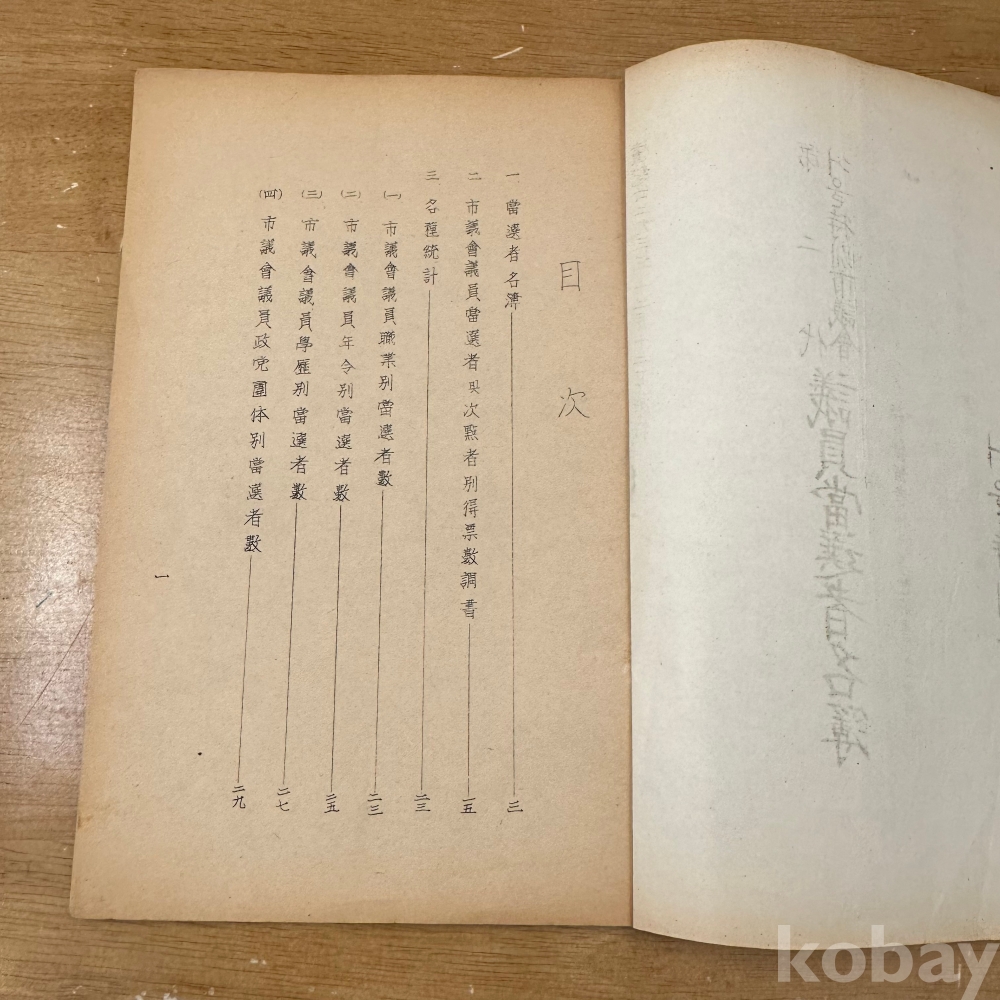 目次
一 當選者名簿 三
二 市議會議員當選者與次點者別得票數調書 一五
三 各種統計 二三
(一) 市議會議員職業別當選者數 二三
(二) 市議會議員年令別當選者數 二五
(三) 市議會議員學歷別當選者數 二七
(四) 市議會議員政党團体別當選者數 二九
一
서울特別市議會
議員當選者名簿
kobay